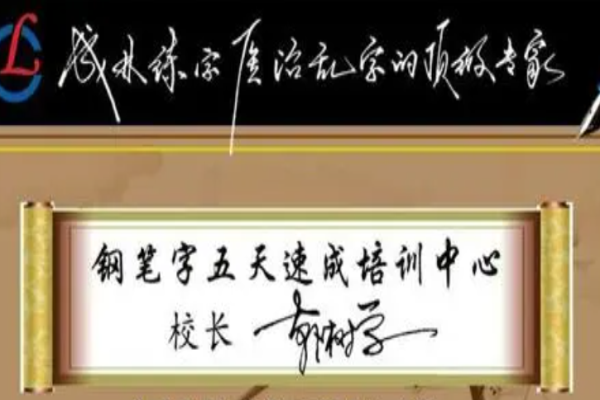 L
成林练字医治乱字的顶级专家
钢笔字五天速成培训中心
校长